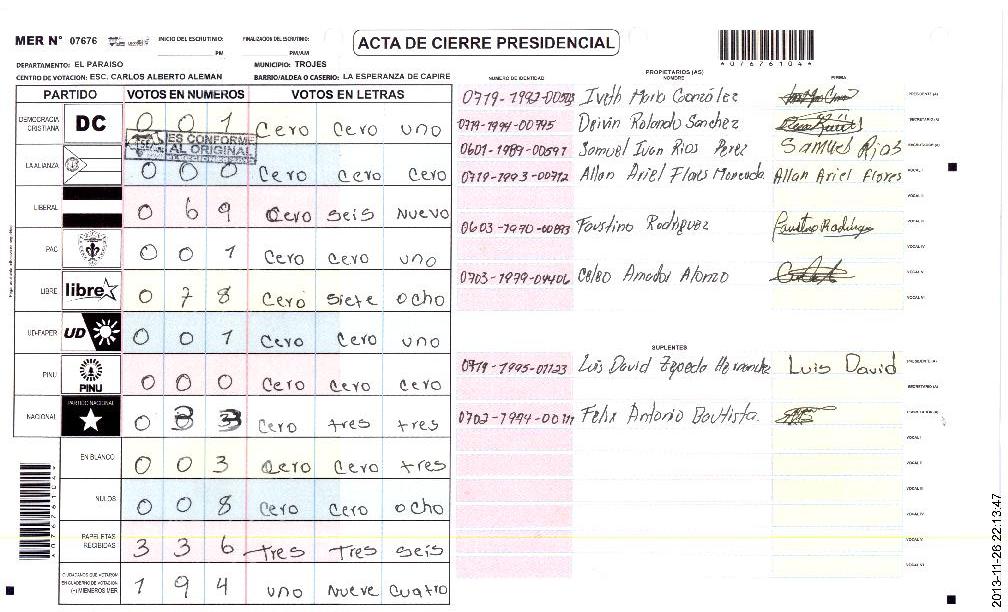 MER N° 07676 INICIO DEL ESCRUTINIO: PM FINALIZACION DEL ESCRUTINIO: PM/AM
ACTA DE CIERRE PRESIDENCIAL
4076761044
DEPARTAMENTO: EL PARAISO MUNICIPIO: TROJES
CENTRO DE VOTACION: ESC. CARLOS ALBERTO ALEMAN BARRIO/ALDEA O CASERIO: LA ESPERANZA DE CAPIRE
PARTIDO VOTOS EN NUMEROS VOTOS EN LETRAS
DEMOCRACIA CRISTIANA DC 0 0 1 Cero Cero uno
ES CONFORME
AL ORIGINAL
LA ALIANZA 0 0 0 Cero Cero Cero
LIBERAL 0 69 Cero seis nuevo
PAC 0 0 1 Cero Cero uno
LIBRE libre 0 7 8 Cero siete ocho
UD-FAPER UD 0 0 1 Cero Cero uno
PINU PINU 0 0 0 Cero Cero Cero
NACIONAL PARTIDO NACIONAL 0 3 3 Cero tres tres
EN BLANCO 0 0 3 Cero Cero tres
NULOS 0 0 8 Cero Cero ocho
PAPELETAS RECIBIDAS 3 3 6 tres tres seis
CIUDADANOS QUE VOTARON
EN CUADERNO DE VOTACION
(+) MIEMBROS MER 1 9 4 uno nueve cuatro
PROPIETARIOS (AS)
NUMERO DE IDENTIDAD NOMBRE FIRMA
Iveth Mario González PRESIDENTE (A)
0719-1994-00745 Deivin Rolando Sanchez SECRETARIO (A)
0601-1989-00597 Samuel Ivan Rios Perez Samuel Rios
0719-1993-00712 Allan Ariel Flores Allan Ariel Flores VOCAL I
VOCAL II
0603-1970-00893 Faustino Rodriguez Faustino Rodriguez VOCAL III
VOCAL IV
0703-1979-04406 Celeo Amador Alonzo VOCAL V
VOCAL VI
SUPLENTES
0719-1995-01123 Luis David Luis David PRESIDENTE (A)
SECRETARIO (A)
Felix Antonio Bautista
VOCAL I
VOCAL II
VOCAL III
VOCAL IV
VOCAL V
VOCAL VI
4076761044
2013-11-26 22:13:47